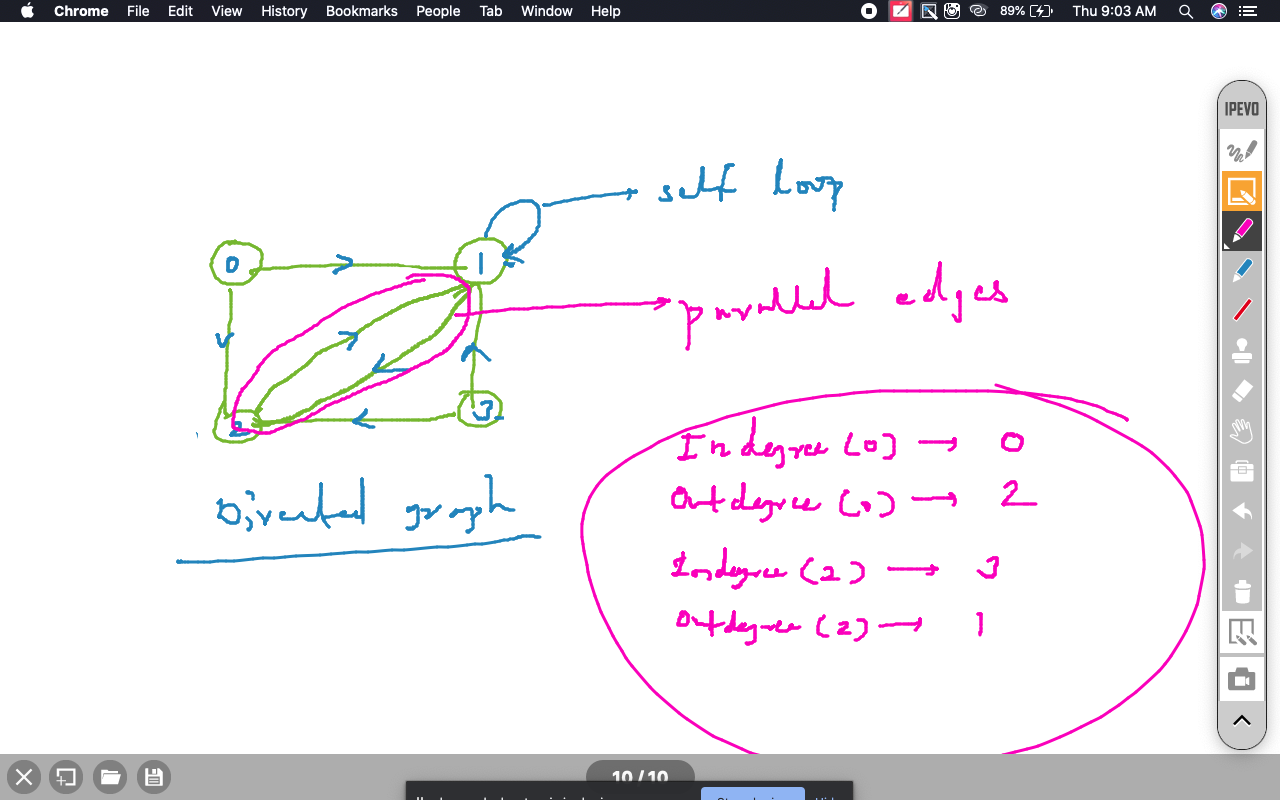 Chrome File Edit View History Bookmarks People Tab Window Help 89% Thu 9:03 AM
IPEVO
self loop
0 1
parallel edges
2 3
Indegree (0) → 0
Outdegree (0) → 2
Directed graph
Indegree (2) → 3
Outdegree (2) → 1
10 / 10